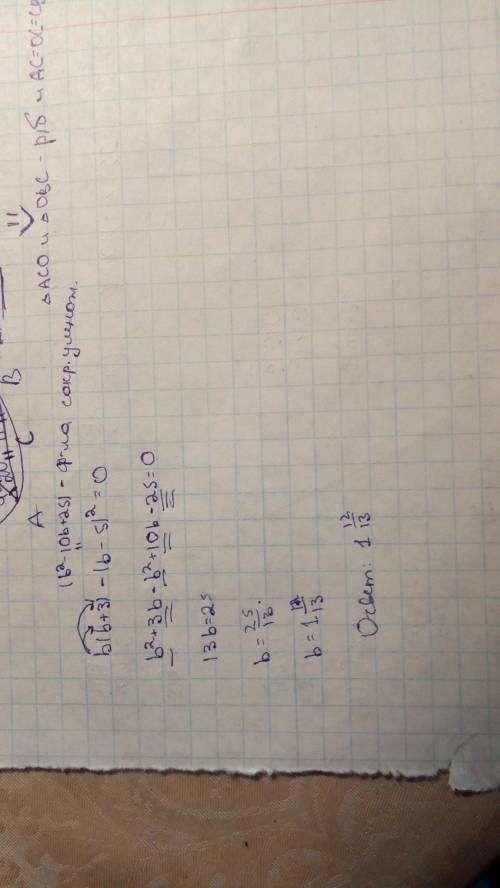 A C B
△ACO и △OBC - р/б и AC=OC=CB
(b²-10b+25) - ф-ла сокр. умнож.
b(b+3) - (b-5)² = 0
b²+3b-b²+10b-25=0
13b=25
b = 25/13.
b = 1 12/13
Ответ: 1 12/13